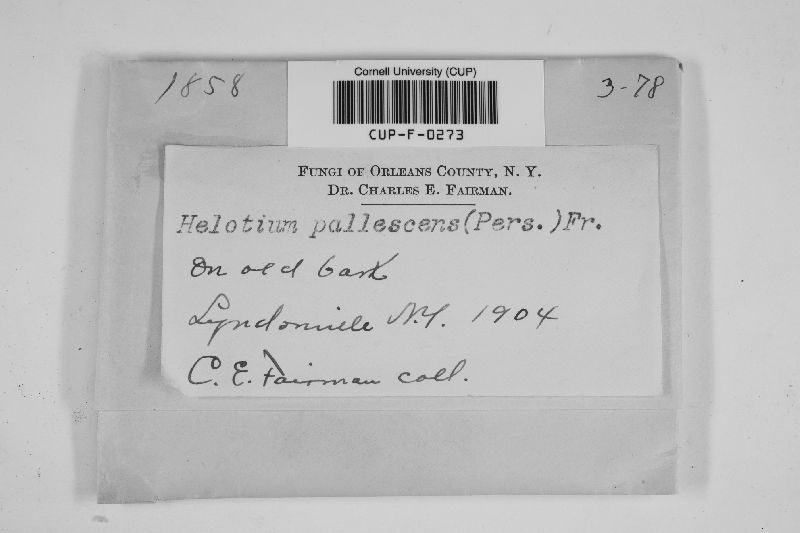 1858
Cornell University (CUP)
3-78
CUP-F-0273
FUNGI OF ORLEANS COUNTY, N. Y.
DR. CHARLES E. FAIRMAN.
Helotium pallescens (Pers.) Fr.
On old bark
Lyndonville N.Y. 1904
C. E. Fairman coll.